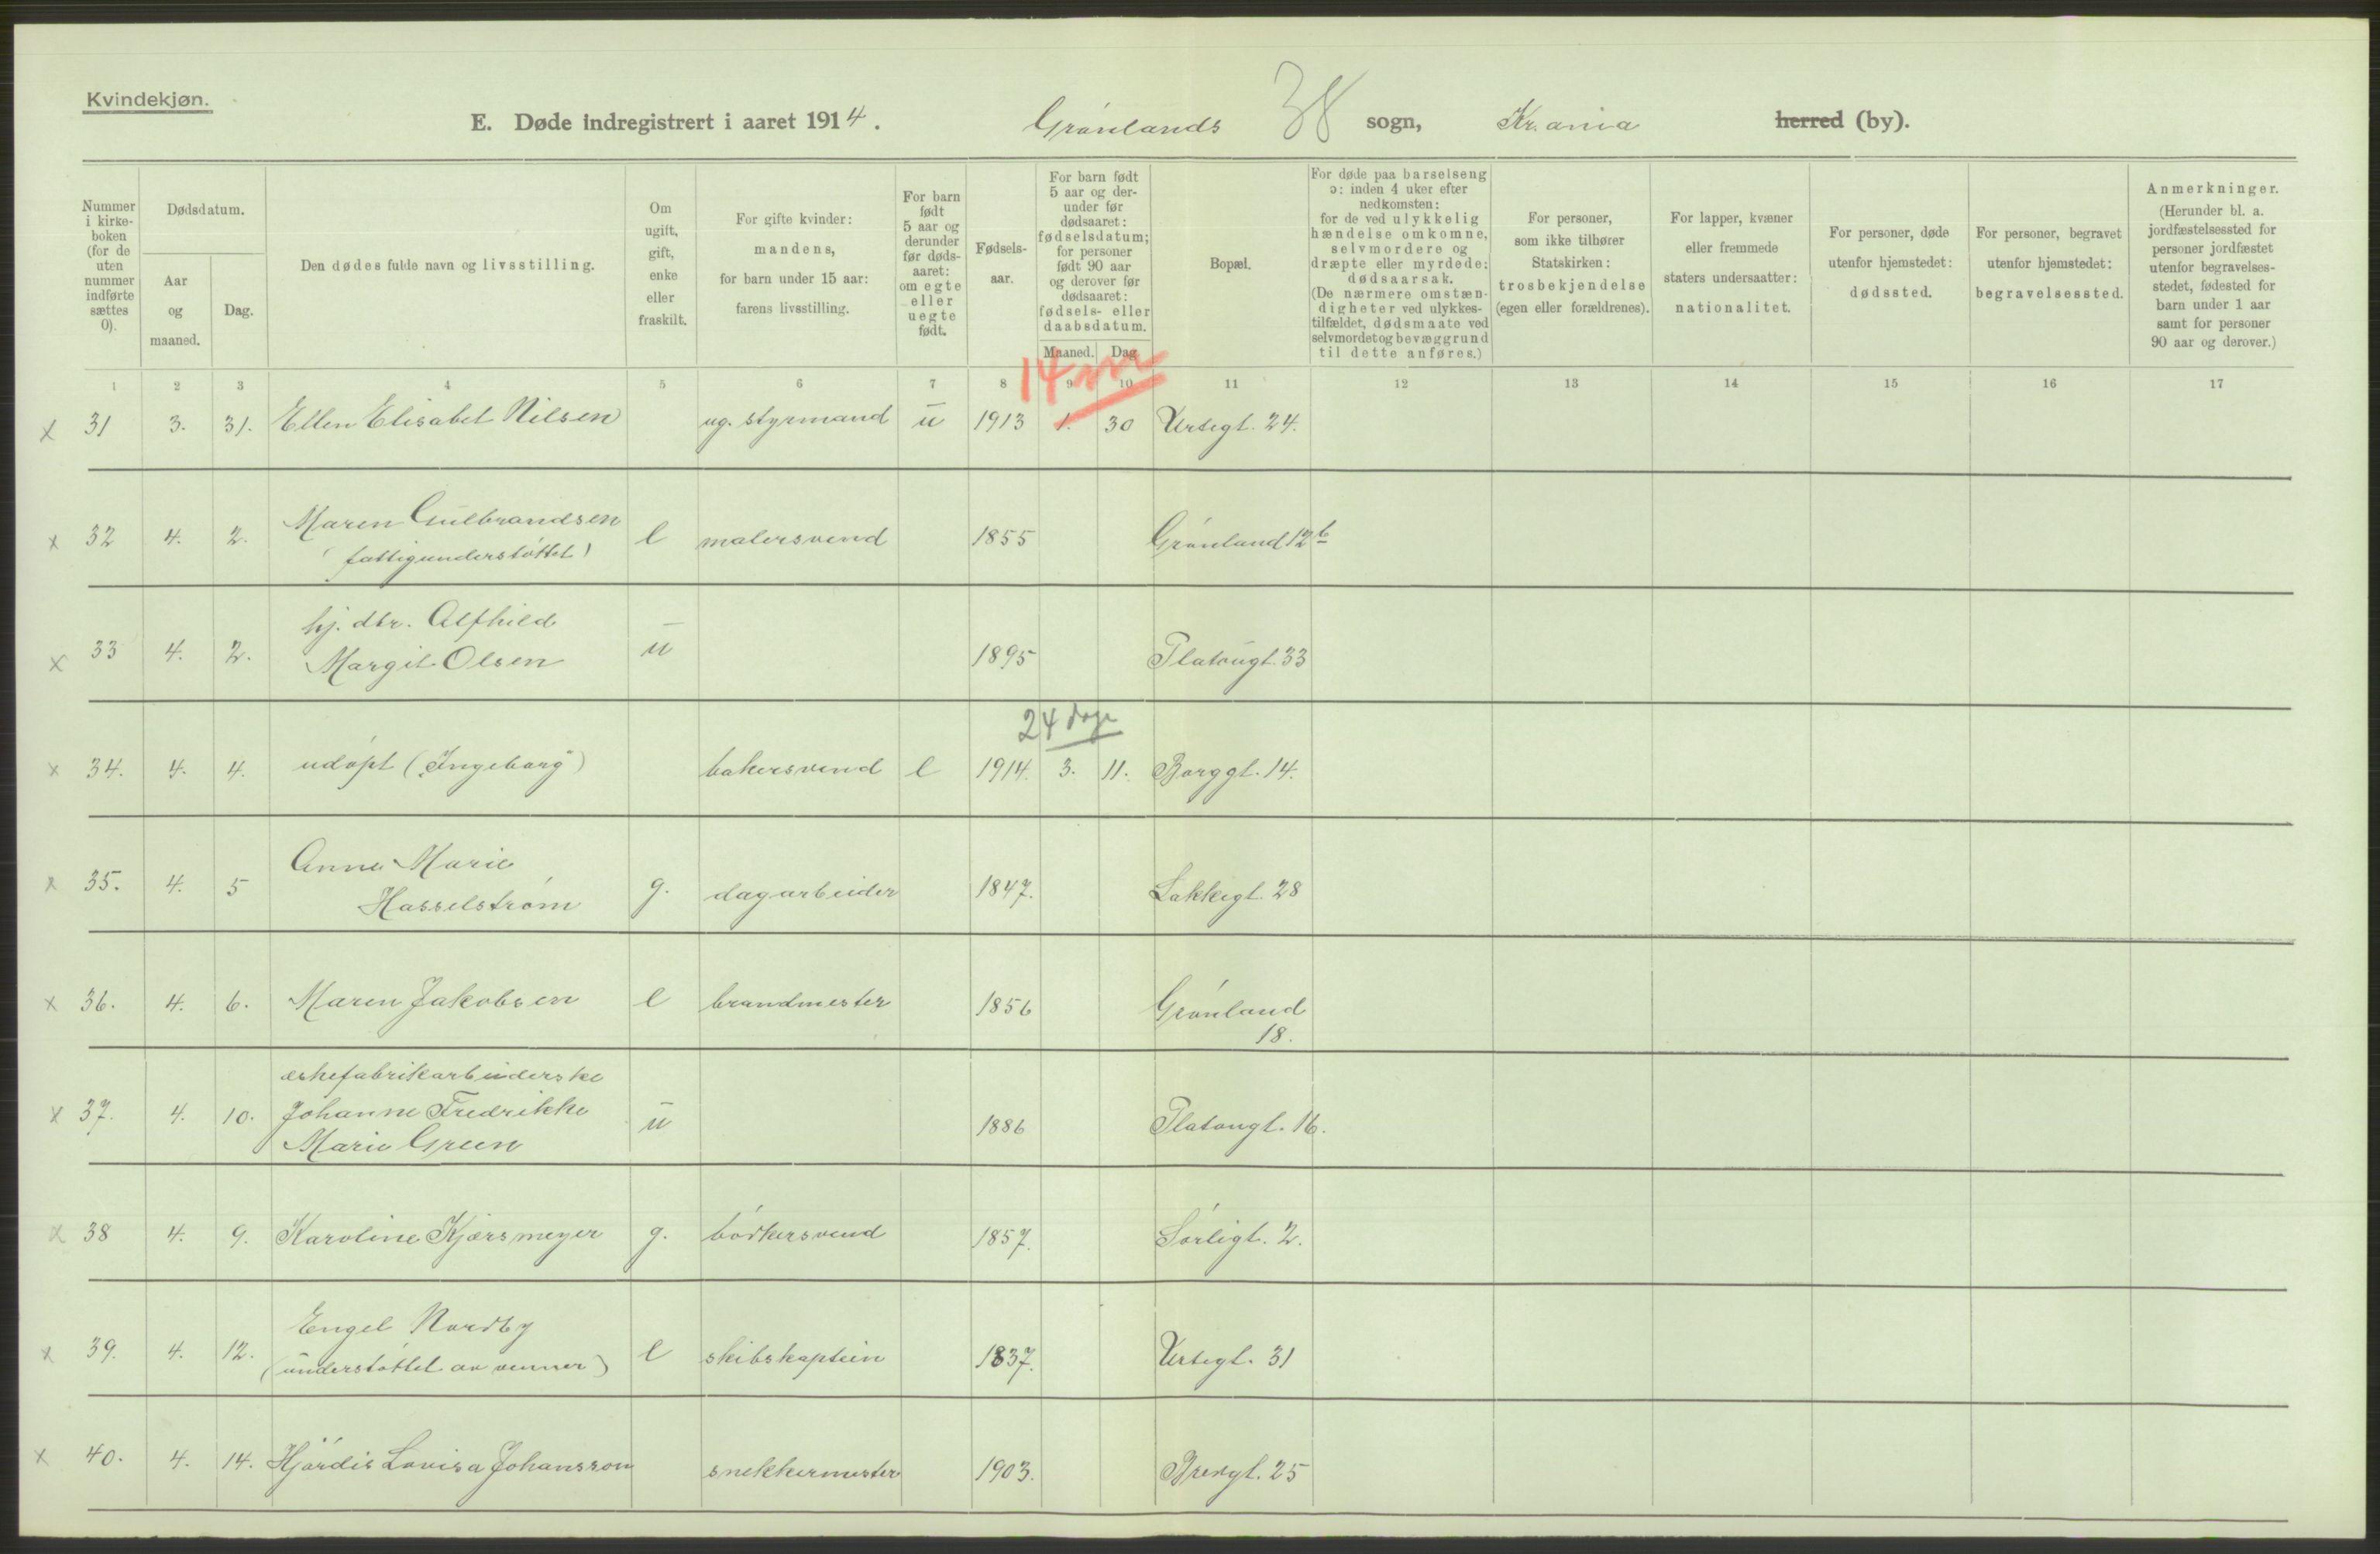 Kvindekjøn.
E. Døde indregistrert i aaret 1914. Grønlands 38 sogn, Kr.ania herred (by).
Nummer i kirke- boken (for de uten nummer indførte sættes 0).
Dødsdatum.
Aar og maaned.
Dag.
Den dødes fulde navn og livsstilling.
Om ugift, gift, enke eller fraskilt.
For gifte kvinder: mandens, for barn under 15 aar: farens livsstilling.
For barn født 5 aar og derunder før døds- aaret: om egte eller uegte født.
Fødsels- aar.
For barn født 5 aar og der- under før dødsaaret: fødselsdatum; for personer født 90 aar og derover før dødsaaret: fødsels- eller daabsdatum.
Maaned. Dag
Bopæl.
For døde paa barselseng ɔ: inden 4 uker efter nedkomsten: for de ved ulykkelig hændelse omkomne, selvmordere og dræpte eller myrdede: dødsaarsak. (De nærmere omstæn- digheter ved ulykkes- tilfældet, dødsmaate ved selvmordet og bevæggrund til dette anføres.)
For personer, som ikke tilhører Statskirken: trosbekjendelse (egen eller forældrenes).
For lapper, kvæner eller fremmede staters undersaatter: nationalitet.
For personer, døde utenfor hjemstedet: dødssted.
For personer, begravet utenfor hjemstedet: begravelsessted.
Anmerkninger. (Herunder bl. a. jordfæstelsessted for personer jordfæstet utenfor begravelses- stedet, fødested for barn under 1 aar samt for personer 90 aar og derover.)
1 2 3 4 5 6 7 8 9 10 11 12 13 14 15 16 17
14 m
x 31 3. 31. Ellen Elisabet Nilsen ug. styrmand u 1913 1. 30 Urtegt. 24.
x 32 4. 2. Maren Gulbrandsen e malersvend 1855 Grønland 12 b
(fattigunderstøttet)
hj. dtr. Alfhild
x 33 4. 2. Margit Olsen u 1895 Platougt. 33
24 dage
x 34. 4. 4. udøpt ("Ingeborg") bakersvend e 1914. 3. 11. Borggt. 14.
Anne Marie
x 35. 4. 5 Hasselstrøm g. dagarbeider 1847. Lakkegt. 28
x 36. 4. 6. Maren Jakobsen e brandmester 1856 Grønland
18.
æskefabrikarbeiderske
x 37. 4. 10. Johanne Fredrikke u 1886 Platougt. 16.
Marie Green
x 38 4. 9. Karoline Kjærsmeyer g. bødkersvend 1857. Sørligt. 2.
Engel Nordby
x 39. 4. 12. (understøttet av venner) e skibskaptein 1837. Urtegt. 31
x 40. 4. 14. Hjørdis Lovisa Johansson snekkermester 1903. Breigt. 25